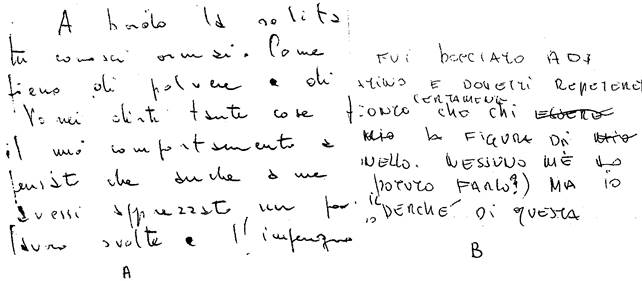 A bordo la solita
tu conosci ormai. Come
pieno di polvere e di
Vorrei dirti tante cose
il mio comportamento e
pensato che anche a me
avessi apprezzato un po'
lavoro svolto e l'impegno
A
FUI BOCCIATO AD
E DOVETTI RIPETERE
CERTAMENTE
CHE CHI
LA FIGURA DI
NELLO. NESSUNO ME
POTUTO FARLO?) MA IO
PERCHÉ DI QUESTA
B